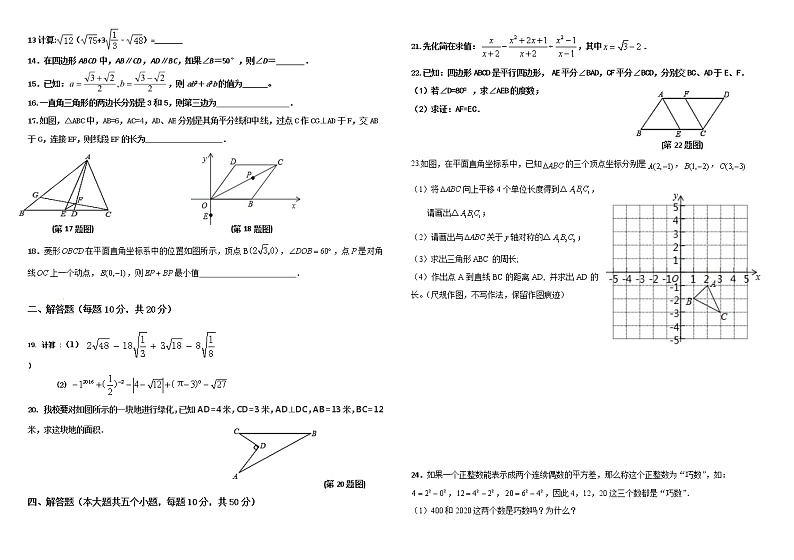 13计算:√12（√75+3√(1/3)﹣√48）=_______
14．在四边形ABCD中，AB∥CD，AD∥BC，如果∠B=50°，则∠D=_______．
15．已知：a=(√3+√2)/2,b=(√3−√2)/2，则ab³+a³b的值为_______。
16.一直角三角形的两边长分别是3和5，则第三边为_______．
17.如图，△ABC中，AB=6，AC=4，AD、AE分别是其角平分线和中线，过点C作CG⊥AD于F，交AB
于G，连接EF，则线段EF的长为_______．
A
G
F
B
E
D
C
(第17题图)
y
D
C
P
O
B
x
E
(第18题图)
18．菱形OBCD在平面直角坐标系中的位置如图所示，顶点B(2√3,0)，∠DOB=60°，点P是对角
线OC上一个动点，E(0,-1)，则EP+BP最小值_______．
二、解答题（每题10分，共20分）
19. 计算：（1） 2√48−18√(1/3)+3√18−8√(1/8)
）
(2) −1²⁰¹⁶+(1/2)⁻²−|4−√12|+(π−3)⁰−√27
20．我校要对如图所示的一块地进行绿化,已知AD=4米,CD=3米,AD⊥DC,AB=13米,BC=12
米，求这块地的面积．
C
B
D
A
(第20题图)
四、解答题（本大题共五个小题，每题10分，共50分）
21.先化简在求值：x/(x+2)−(x²+2x+1)/(x+2)÷(x²−1)/(x−1)，其中x=√3−2．
22.已知：四边形ABCD是平行四边形，AE平分∠BAD,CF平分∠BCD，分别交BC、AD于E、F．
（1）若∠D=80°，求∠AEB的度数；
（2）求证：AF=EC．
A
F
D
B
E
C
(第22题图)
23.如图，在平面直角坐标系中，已知△ABC的三个顶点坐标分别是A(2,−1)，B(1,−2)，C(3,−3)
（1）将△ABC向上平移4个单位长度得到△A₁B₁C₁，
请画出△A₁B₁C₁；
（2）请画出与△ABC关于y轴对称的△A₂B₂C₂；
（3）求出三角形ABC 的周长.
（4）作出点A到直线BC的距离AD, 并求出AD的
长。（尺规作图，不写作法，保留作图痕迹）
y
5
4
3
2
1
-5 -4 -3 -2 -1O 1 2 3 4 5 x
-1
-2
-3
-4
-5
A
B
C
24．如果一个正整数能表示成两个连续偶数的平方差，那么称这个正整数为“巧数”，如：
4=2²−0²，12=4²−2²，20=6²−4²，因此4，12，20这三个数都是“巧数”．
（1）400和2020这两个数是巧数吗？为什么？